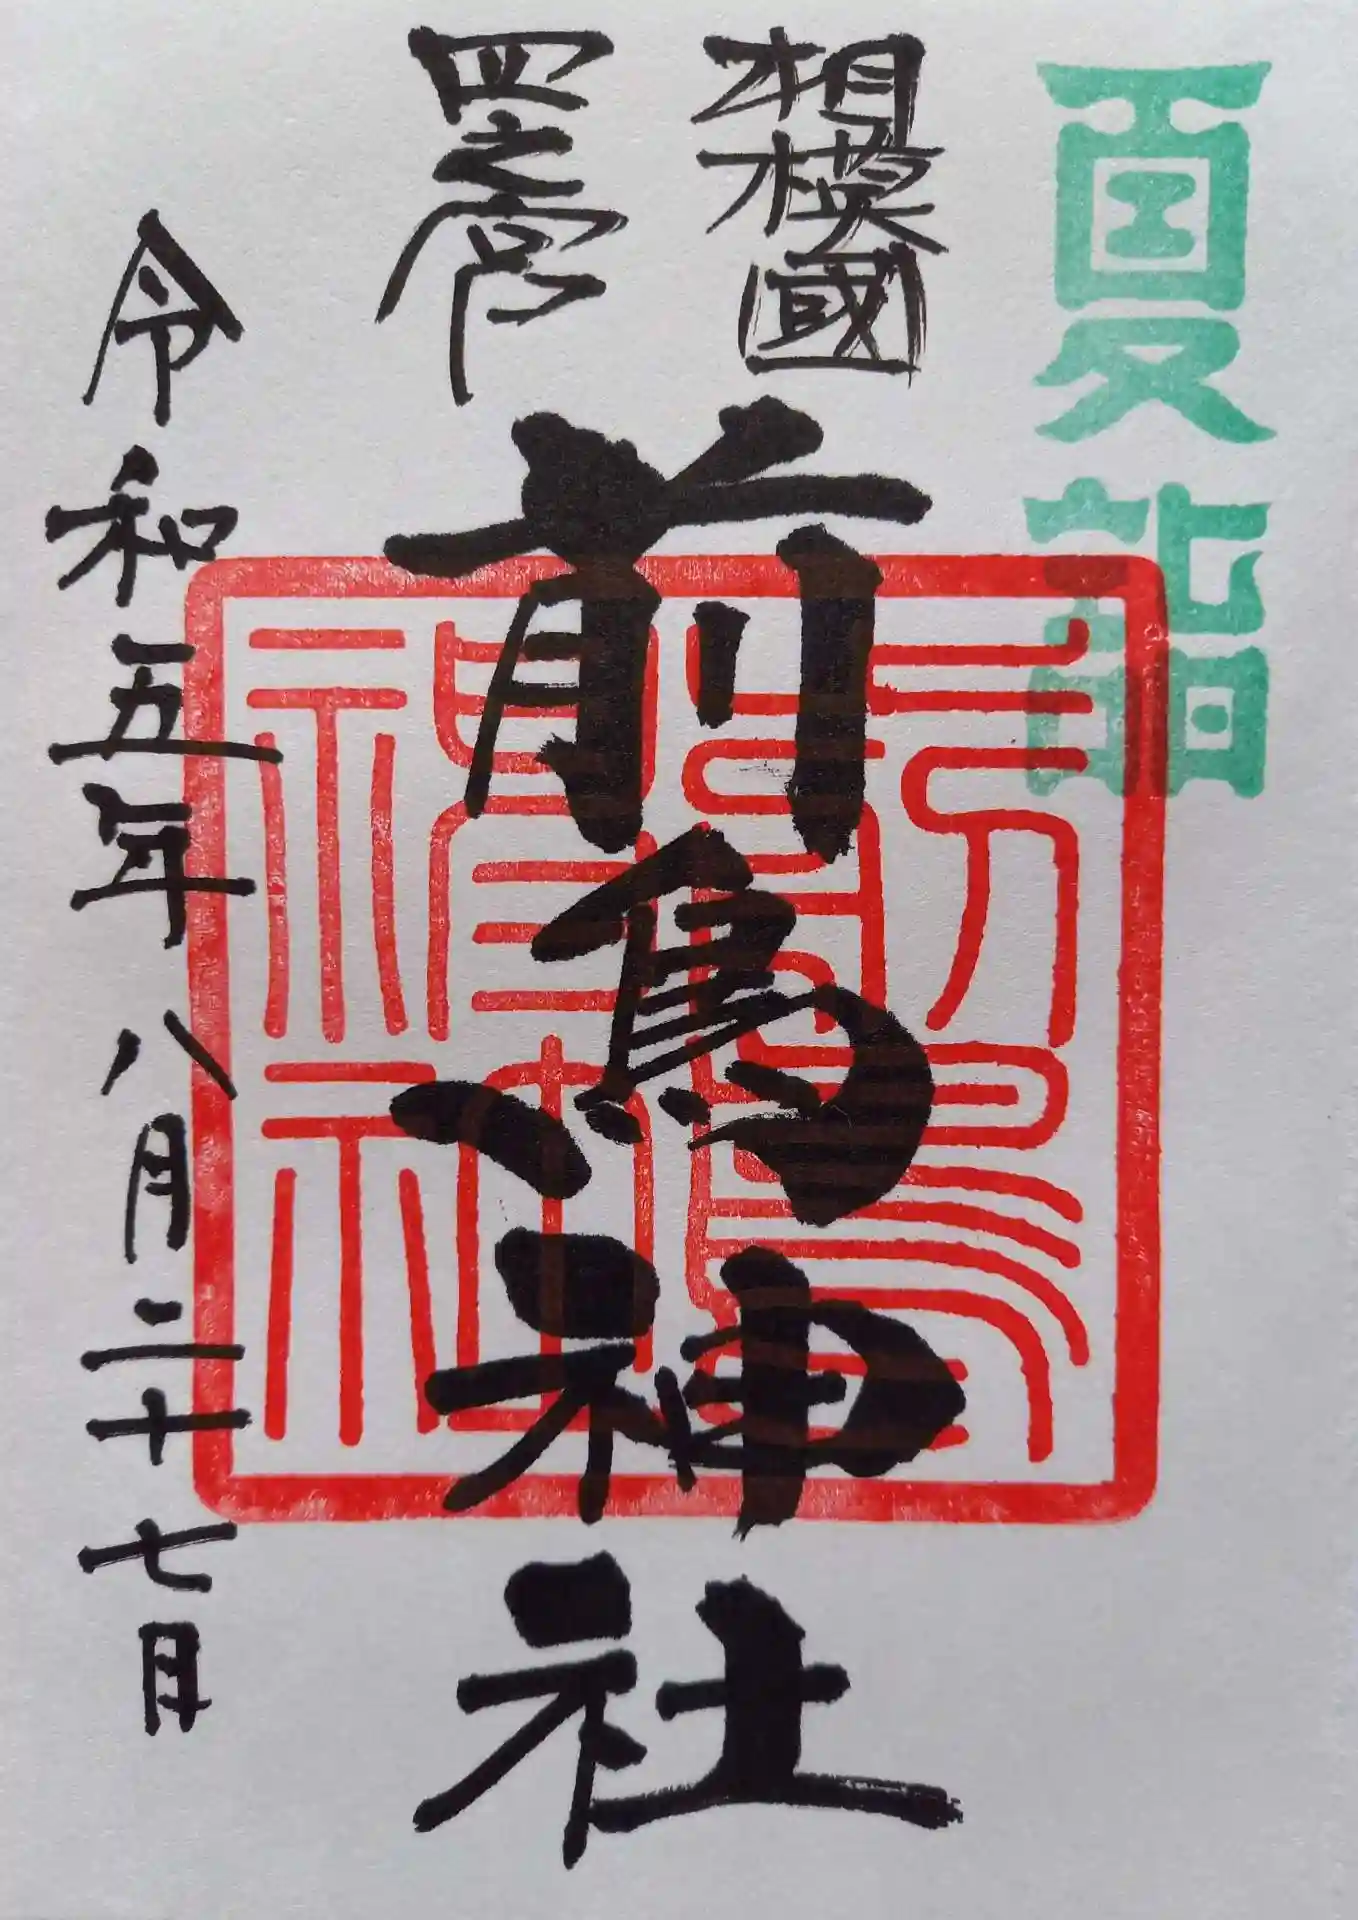 夏詣
相模國
四之宮
前鳥神社
前鳥
神社
令和五年八月二十七日